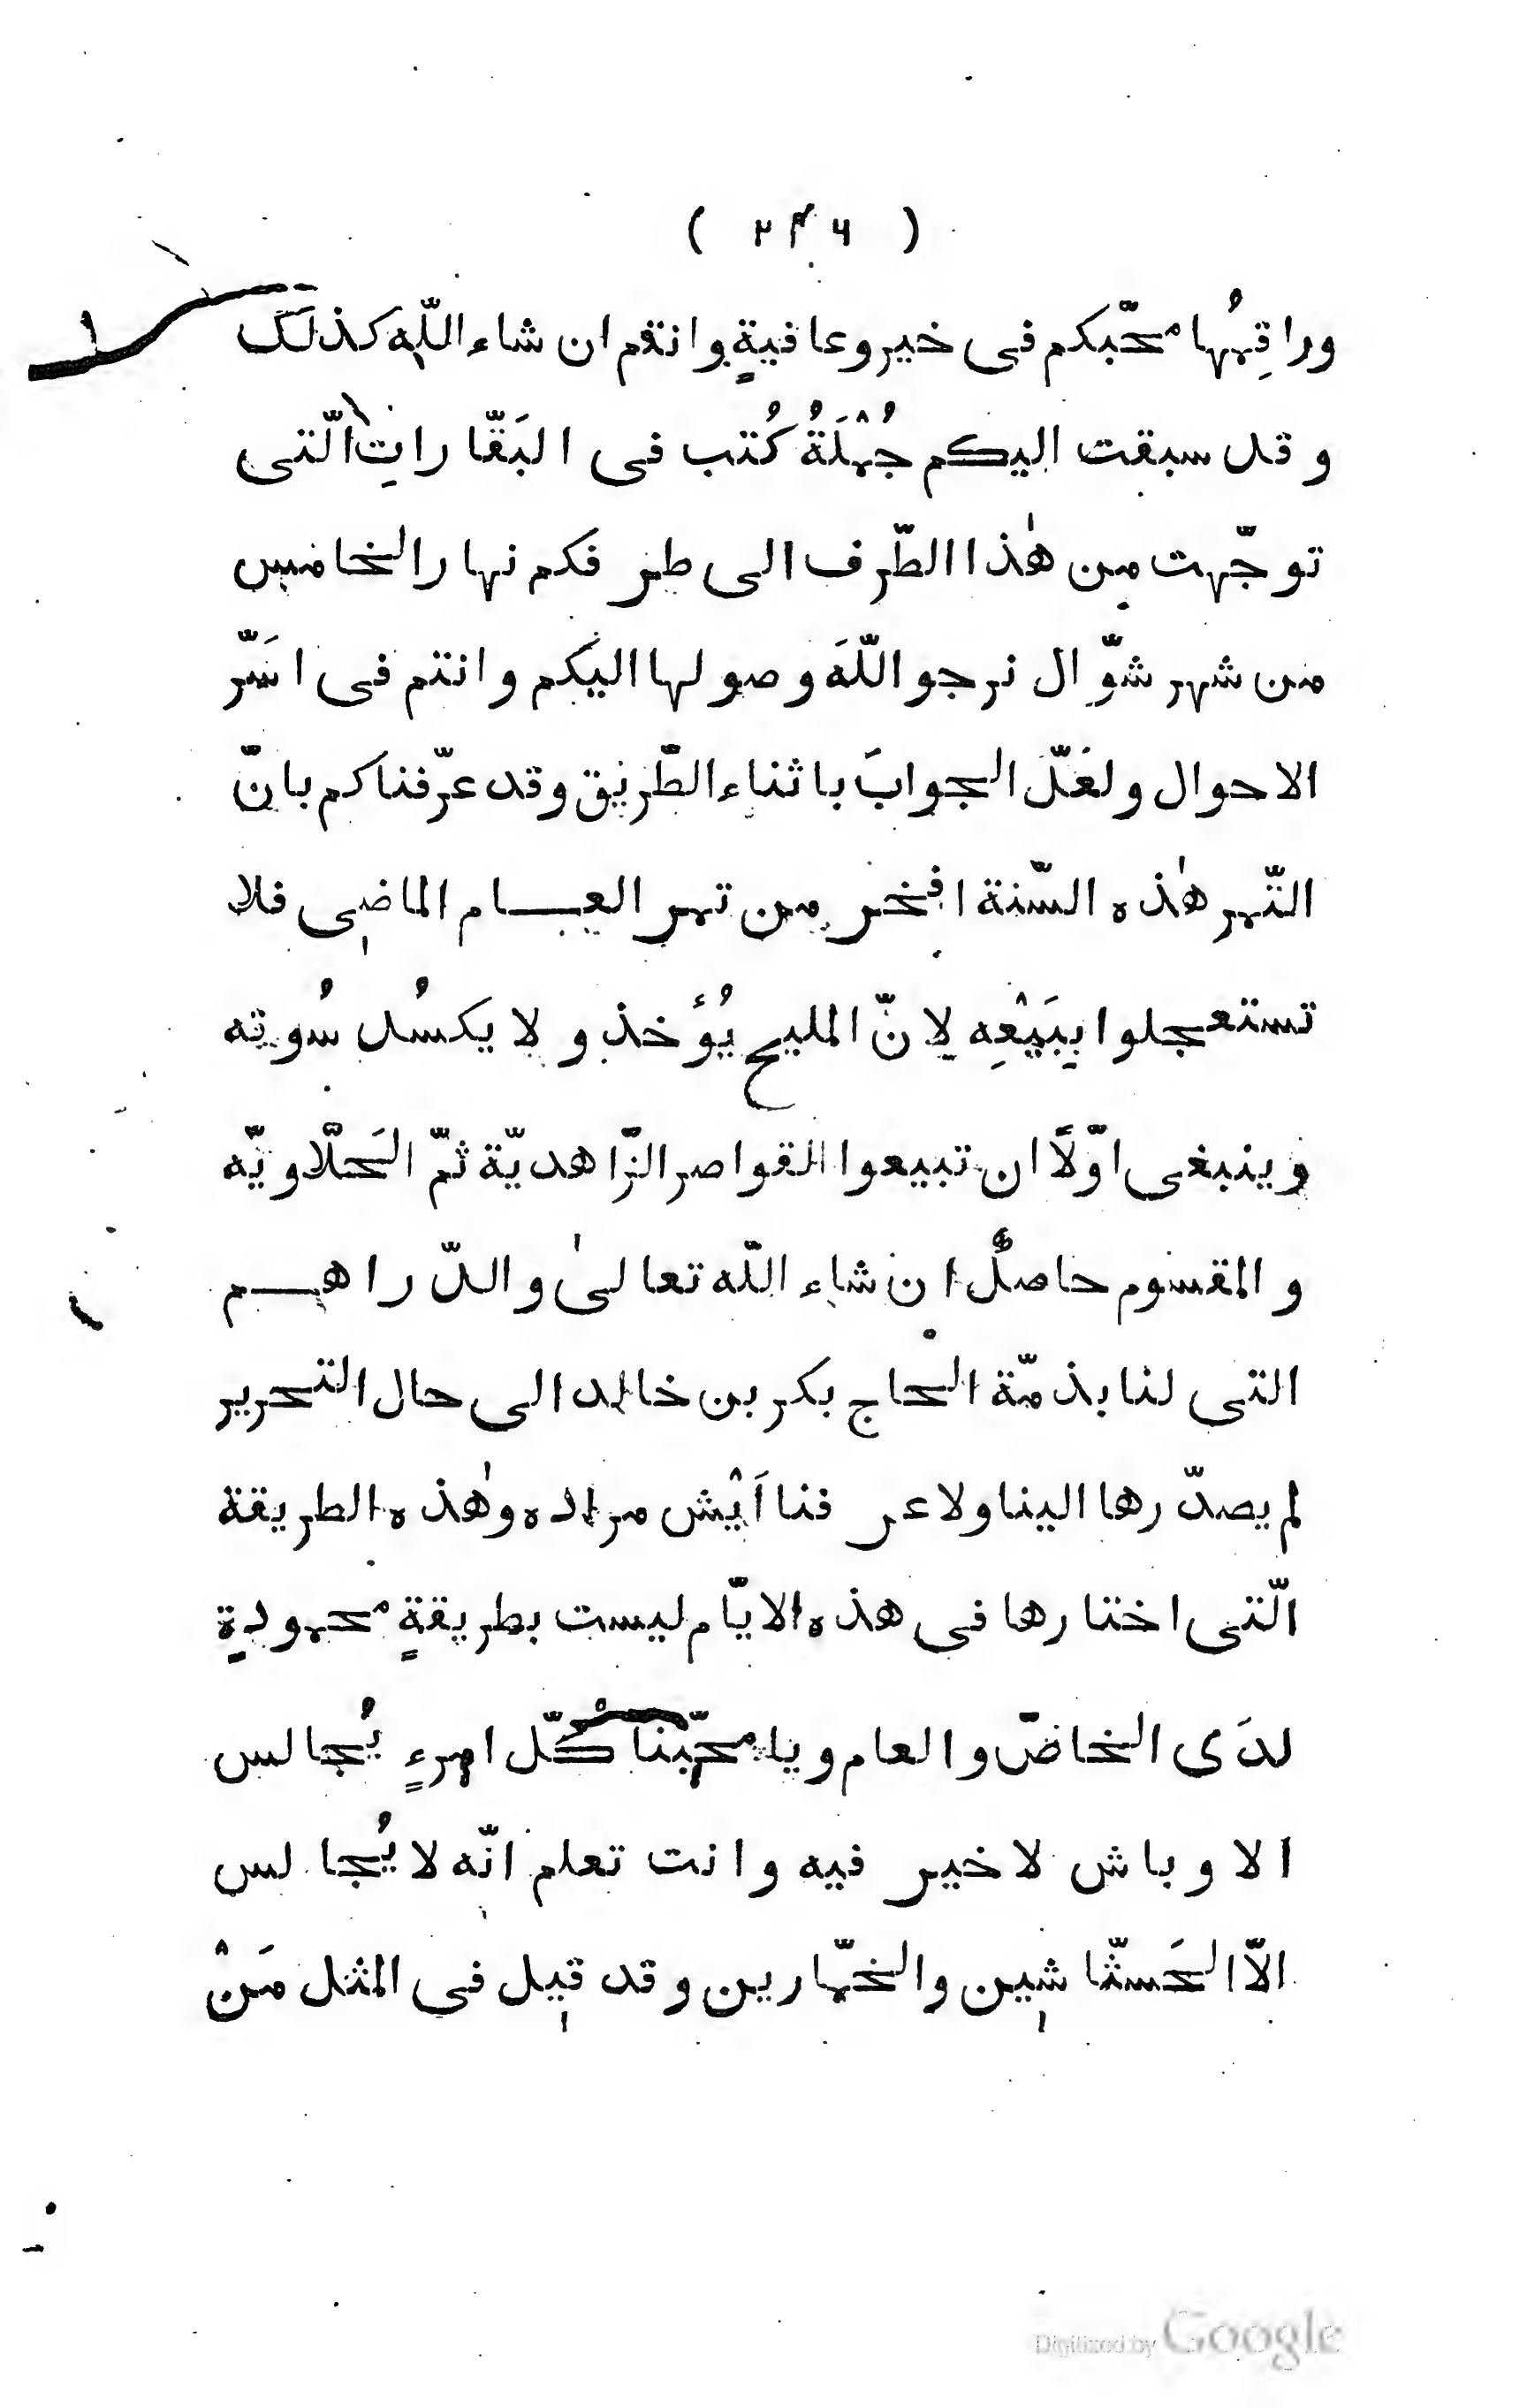 ( ٢٤٦ )
وراقِمُها محّبكم فى خير وعافيةٍ وانتم ان شاء اللّٰه كذلك
و قد سبقت اليكم جُمْلَةُ كُتب فى البَقّاراتِ الّتى
توجّهت من هٰذا الطّرف الى طرفكم نهار الخامس
من شهر شوّال نرجو اللّهَ وصولها اليكم وانتم فى اسَرّ
الاحوال ولعَلّ الجوابَ باثناء الطّريق وقد عرّفناكم بانّ
التّمر هٰذه السّنة افخر من تمر العام الماضى فلا
تستعجلوا بِبَيْعِه لِانّ المليح يُؤَخذ و لا يكسُد سُوقه
وينبغى اوّلاً ان تبيعوا القواصر الزّاهديّة ثمّ الحَلّاويّه
و المقسوم حاصلٌ ان شاء اللّه تعالىٰ والدّراهم
التى لنا بذمّة الحاج بكر بن خالد الى حال التحرير
لم يصدّرها الينا ولا عرفنا اَيْش مراده وهٰذه الطريقة
الّتى اختارها فى هذه الايّام ليست بطريقةٍ محمودةٍ
لدَى الخاصّ و العام ويا محبّنا كلّ امرءٍ يُجالس
الاوباش لاخير فيه وانت تعلم انّه لا يُجالس
الّا الحَشّاشين والخمّارين وقد قيل فى المثل مَنْ
Digitized by Google